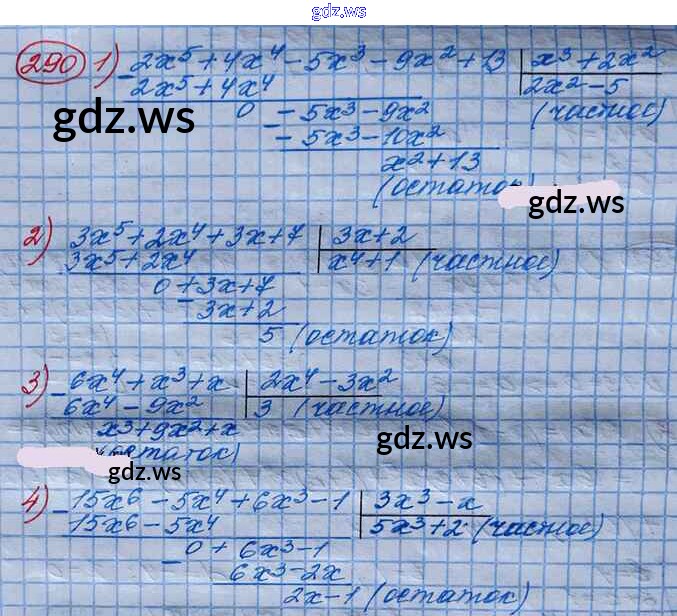 gdz.ws
290 1) 2x⁵ + 4x⁴ - 5x³ - 9x² + 13 | x³ + 2x²
2x⁵ + 4x⁴ | 2x² - 5
gdz.ws 0 - 5x³ - 9x² (частное)
- 5x³ - 10x²
x² + 13
(остаток)
gdz.ws
2) 3x⁵ + 2x⁴ + 3x + 7 | 3x + 2
3x⁵ + 2x⁴ | x⁴ + 1 (частное)
0 + 3x + 7
- 3x + 2
5 (остаток)
3) - 6x⁴ + x³ + x | 2x⁴ - 3x²
6x⁴ - 9x² | 3 (частное)
x³ + 9x² + x
(остаток)
gdz.ws
gdz.ws
4) - 15x⁶ - 5x⁴ + 6x³ - 1 | 3x³ - x
15x⁶ - 5x⁴ | 5x³ + 2 (частное)
0 + 6x³ - 1
- 6x³ - 2x
2x - 1 (остаток)